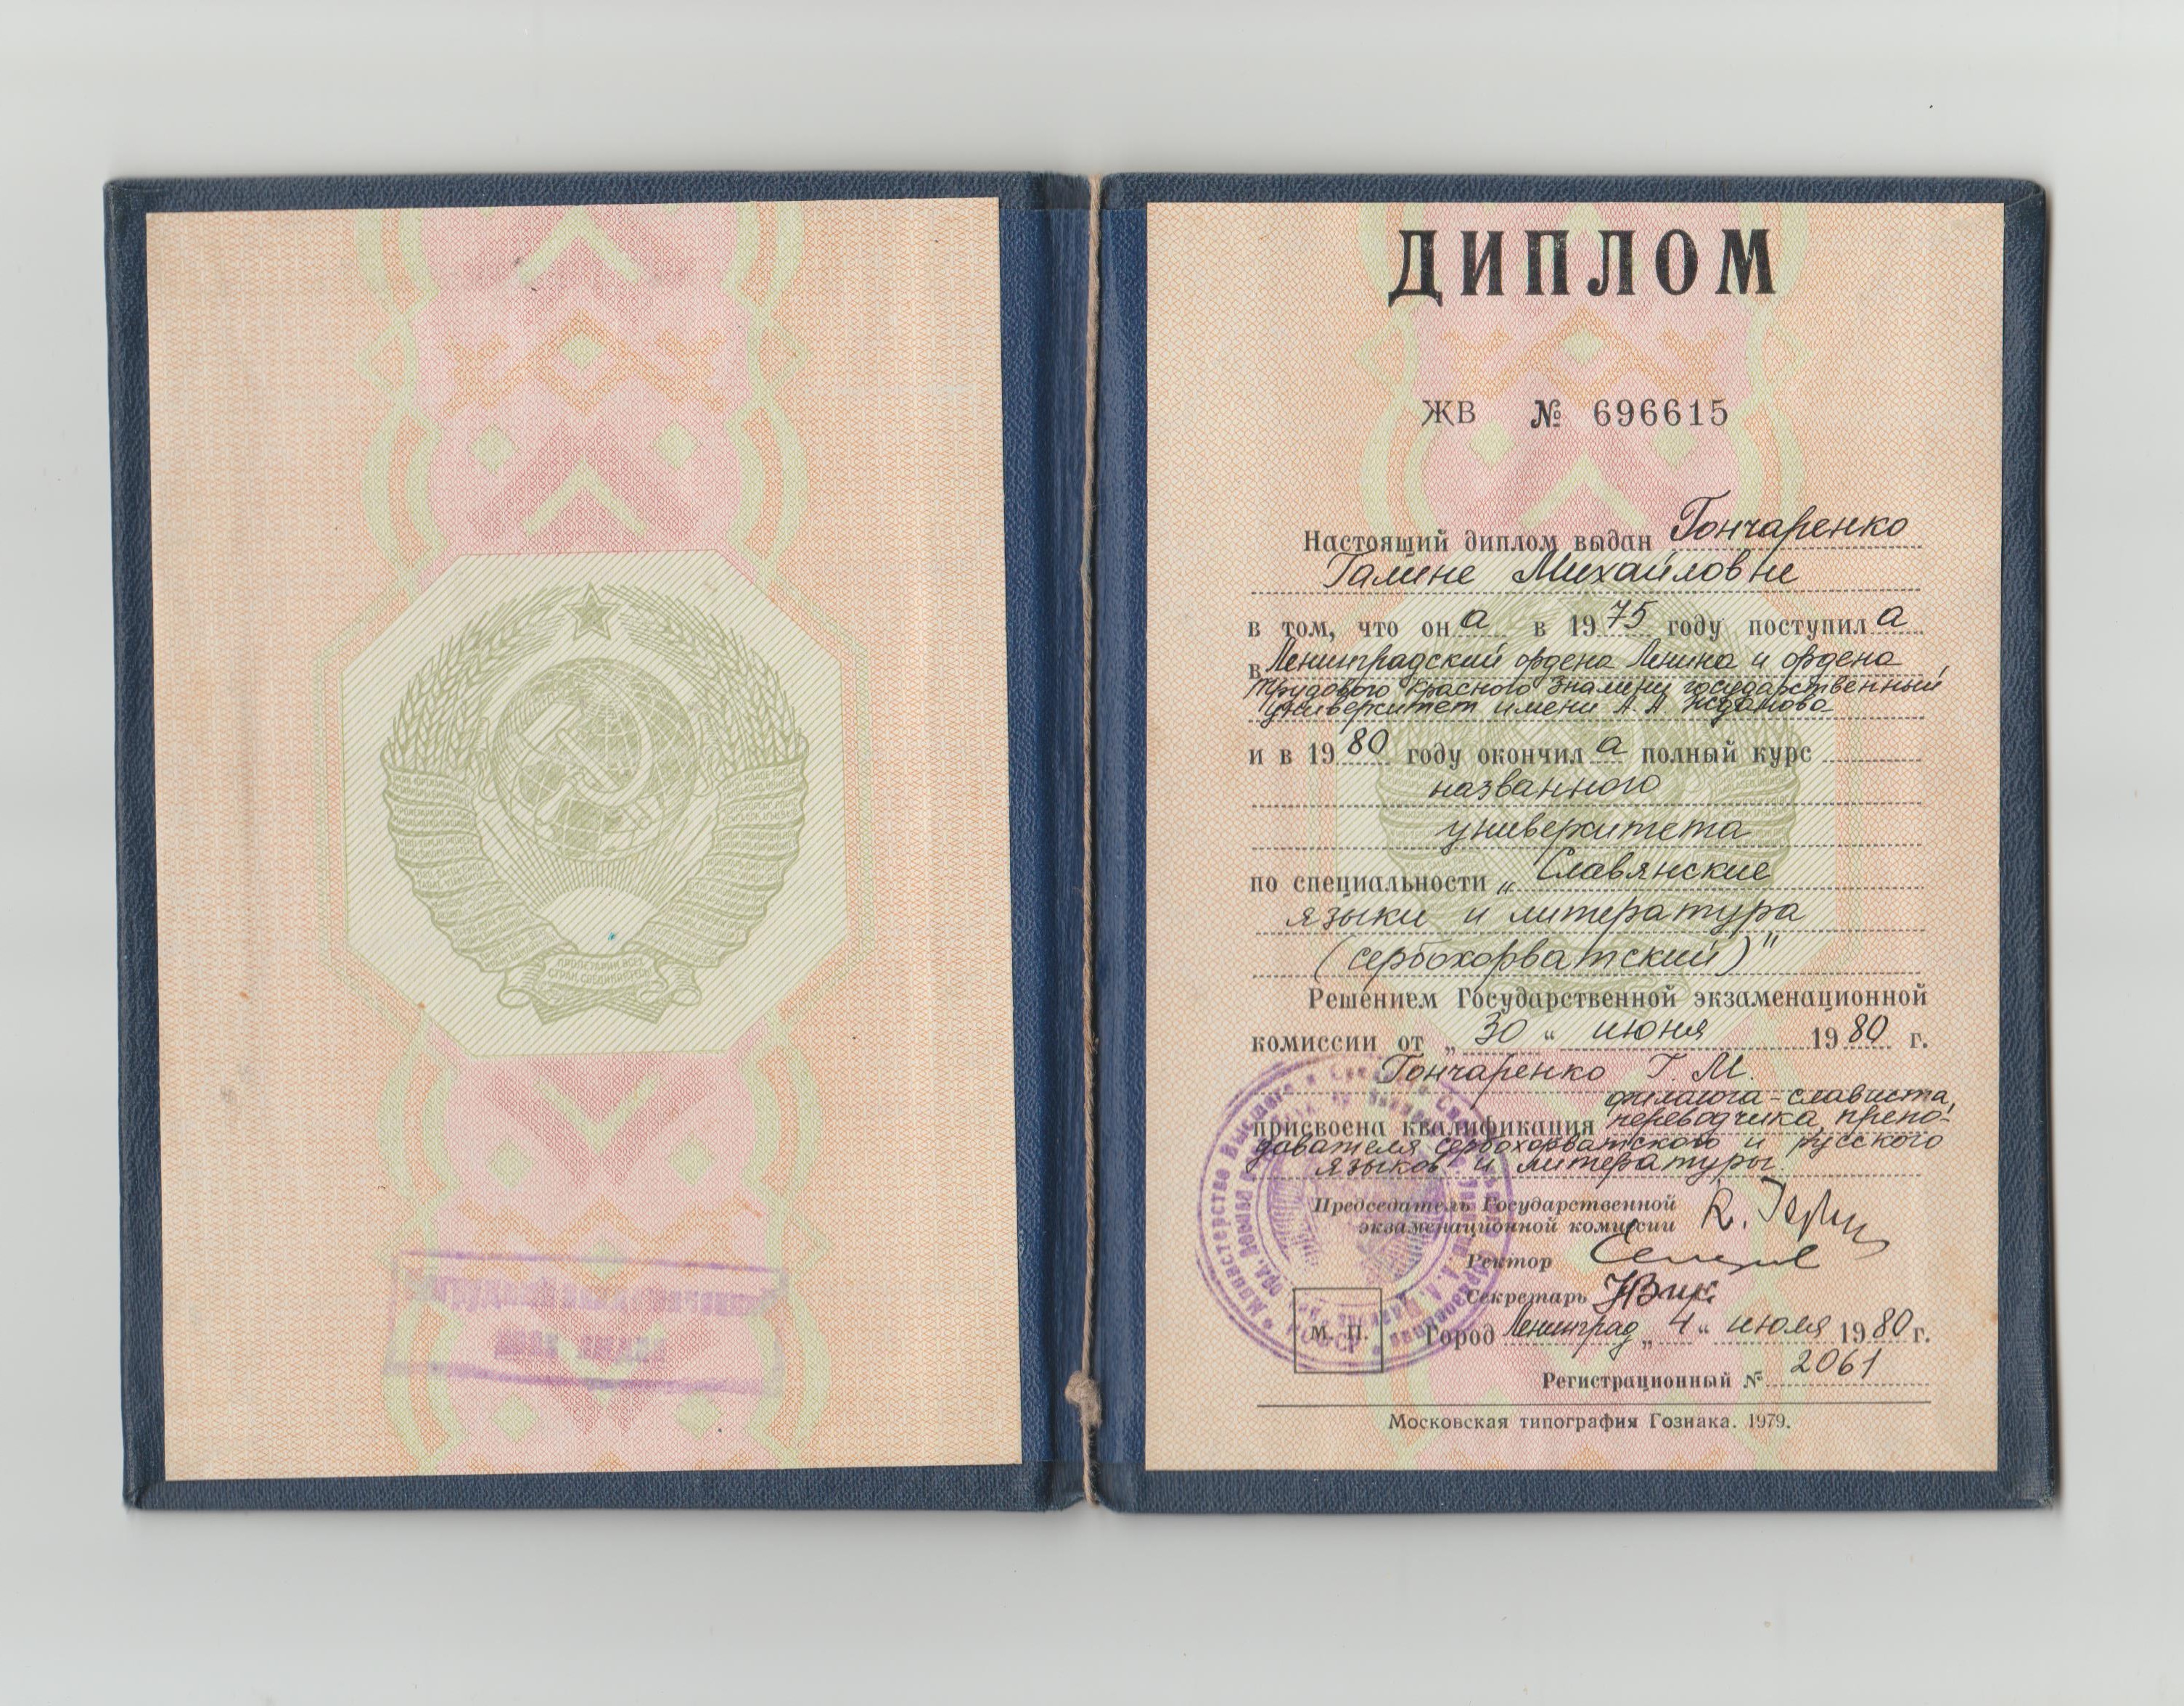 ПРОЛЕТАРИИ ВСЕХ
СТРАН, СОЕДИНЯЙТЕСЬ!
ДИПЛОМ
ЖВ № 696615
Настоящий диплом выдан Гончаренко
Галине Михайловне
в том, что он а в 19 75 году поступил а
в Ленинградский ордена Ленина и ордена
Трудового Красного Знамени государственный
университет имени А. А. Жданова
и в 19 80 году окончил а полный курс
названного
университета
по специальности „ Славянские
языки и литература
(сербохорватский)"
Решением Государственной экзаменационной
комиссии от „ 30 “ июня 19 80 г.
Гончаренко Г. М.
филолога-слависта,
присвоена квалификация переводчика, препо-
давателя сербохорватского и русского
языков и литературы.
Председатель Государственной
экзаменационной комиссии
Ректор
Секретарь
М. П. Город Ленинград „ 4 “ июля 19 80 г.
Регистрационный № 2061
Московская типография Гознака. 1979.